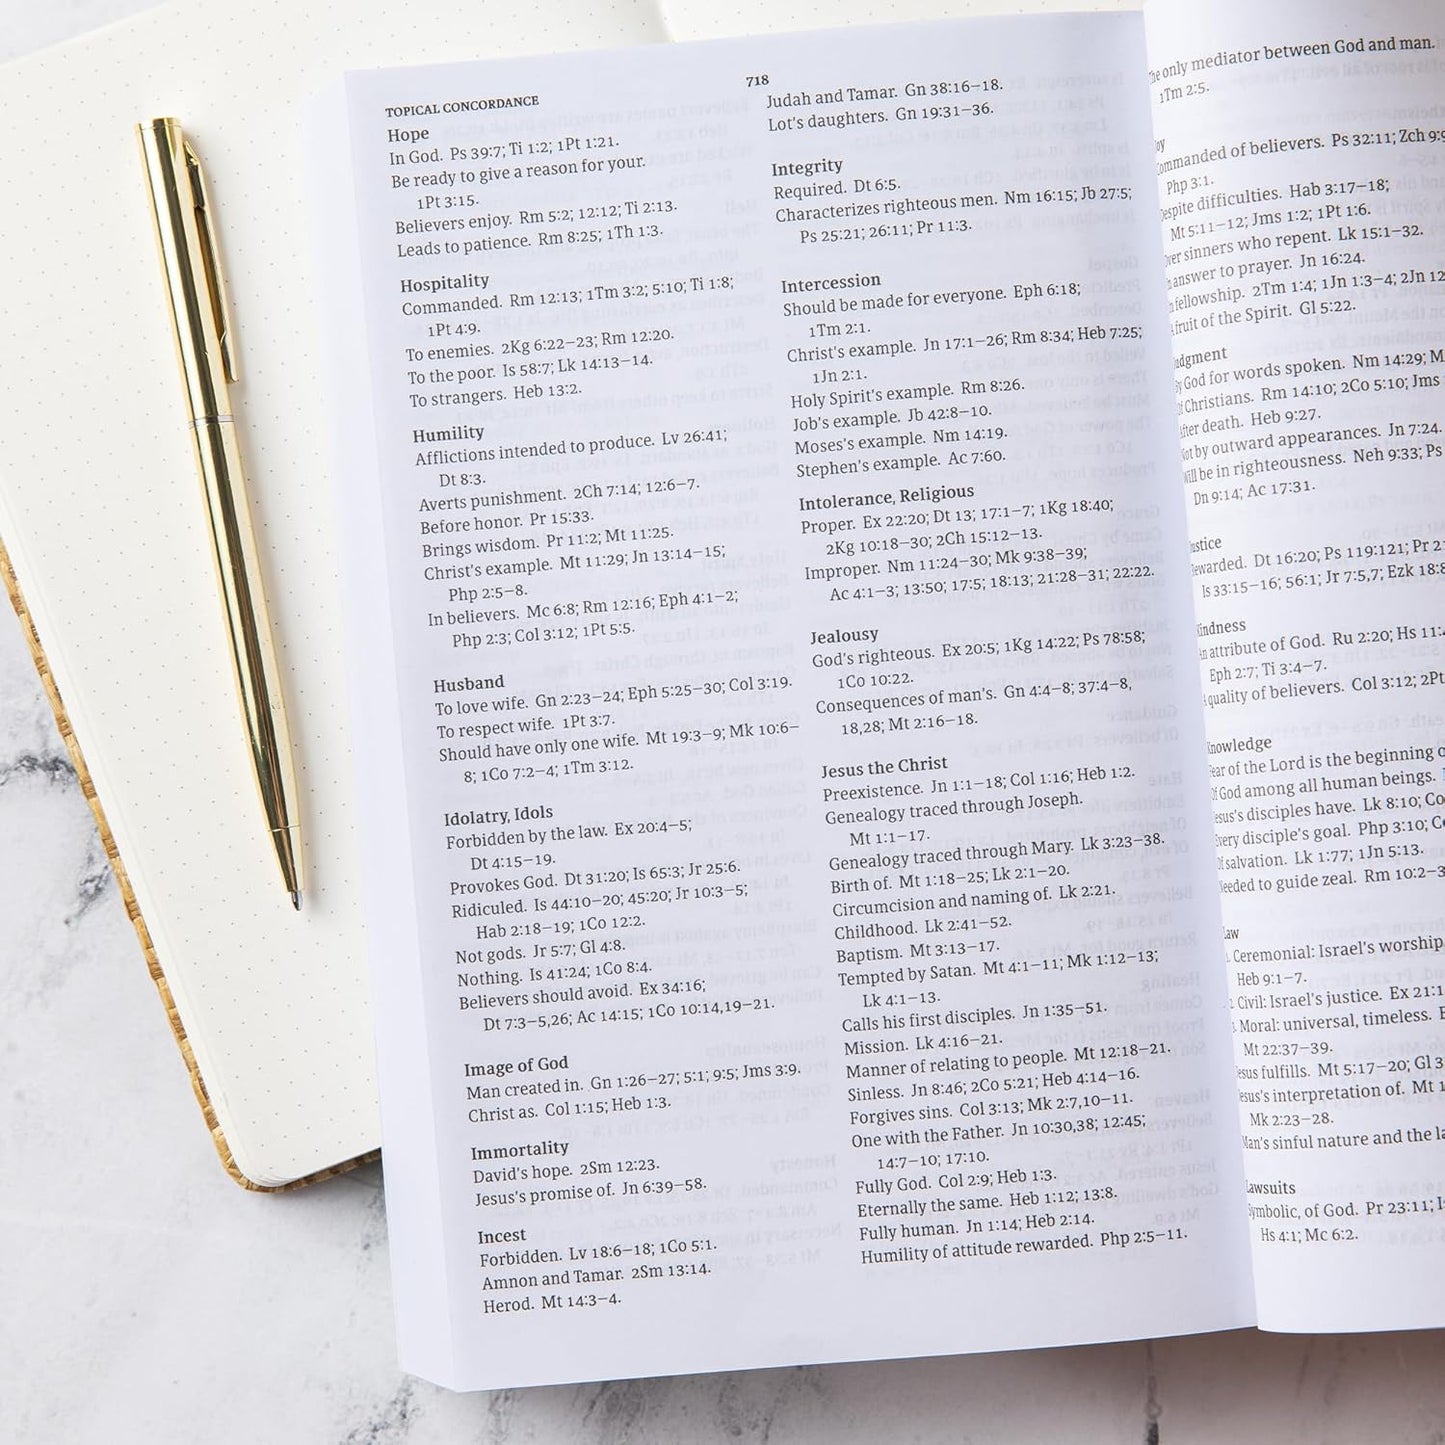 718
TOPICAL CONCORDANCE
Hope
In God. Ps 39:7; Ti 1:2; 1Pt 1:21.
Be ready to give a reason for your.
1Pt 3:15.
Believers enjoy. Rm 5:2; 12:12; Ti 2:13.
Leads to patience. Rm 8:25; 1Th 1:3.
Hospitality
Commanded. Rm 12:13; 1Tm 3:2; 5:10; Ti 1:8;
1Pt 4:9.
To enemies. 2Kg 6:22–23; Rm 12:20.
To the poor. Is 58:7; Lk 14:13–14.
To strangers. Heb 13:2.
Humility
Afflictions intended to produce. Lv 26:41;
Dt 8:3.
Averts punishment. 2Ch 7:14; 12:6–7.
Before honor. Pr 15:33.
Brings wisdom. Pr 11:2; Mt 11:25.
Christ's example. Mt 11:29; Jn 13:14–15;
Php 2:5–8.
In believers. Mc 6:8; Rm 12:16; Eph 4:1–2;
Php 2:3; Col 3:12; 1Pt 5:5.
Husband
To love wife. Gn 2:23–24; Eph 5:25–30; Col 3:19.
To respect wife. 1Pt 3:7.
Should have only one wife. Mt 19:3–9; Mk 10:6–
8; 1Co 7:2–4; 1Tm 3:12.
Idolatry, Idols
Forbidden by the law. Ex 20:4–5;
Dt 4:15–19.
Provokes God. Dt 31:20; Is 65:3; Jr 25:6.
Ridiculed. Is 44:10–20; 45:20; Jr 10:3–5;
Hab 2:18–19; 1Co 12:2.
Not gods. Jr 5:7; Gl 4:8.
Nothing. Is 41:24; 1Co 8:4.
Believers should avoid. Ex 34:16;
Dt 7:3–5,26; Ac 14:15; 1Co 10:14,19–21.
Image of God
Man created in. Gn 1:26–27; 5:1; 9:5; Jms 3:9.
Christ as. Col 1:15; Heb 1:3.
Immortality
David's hope. 2Sm 12:23.
Jesus's promise of. Jn 6:39–58.
Incest
Forbidden. Lv 18:6–18; 1Co 5:1.
Amnon and Tamar. 2Sm 13:14.
Herod. Mt 14:3–4.
Judah and Tamar. Gn 38:16–18.
Lot's daughters. Gn 19:31–36.
Integrity
Required. Dt 6:5.
Characterizes righteous men. Nm 16:15; Jb 27:5;
Ps 25:21; 26:11; Pr 11:3.
Intercession
Should be made for everyone. Eph 6:18;
1Tm 2:1.
Christ's example. Jn 17:1–26; Rm 8:34; Heb 7:25;
1Jn 2:1.
Holy Spirit's example. Rm 8:26.
Job's example. Jb 42:8–10.
Moses's example. Nm 14:19.
Stephen's example. Ac 7:60.
Intolerance, Religious
Proper. Ex 22:20; Dt 13; 17:1–7; 1Kg 18:40;
2Kg 10:18–30; 2Ch 15:12–13.
Improper. Nm 11:24–30; Mk 9:38–39;
Ac 4:1–3; 13:50; 17:5; 18:13; 21:28–31; 22:22.
Jealousy
God's righteous. Ex 20:5; 1Kg 14:22; Ps 78:58;
1Co 10:22.
Consequences of man's. Gn 4:4–8; 37:4–8,
18,28; Mt 2:16–18.
Jesus the Christ
Preexistence. Jn 1:1–18; Col 1:16; Heb 1:2.
Genealogy traced through Joseph.
Mt 1:1–17.
Genealogy traced through Mary. Lk 3:23–38.
Birth of. Mt 1:18–25; Lk 2:1–20.
Circumcision and naming of. Lk 2:21.
Childhood. Lk 2:41–52.
Baptism. Mt 3:13–17.
Tempted by Satan. Mt 4:1–11; Mk 1:12–13;
Lk 4:1–13.
Calls his first disciples. Jn 1:35–51.
Mission. Lk 4:16–21.
Manner of relating to people. Mt 12:18–21.
Sinless. Jn 8:46; 2Co 5:21; Heb 4:14–16.
Forgives sins. Col 3:13; Mk 2:7,10–11.
One with the Father. Jn 10:30,38; 12:45;
14:7–10; 17:10.
Fully God. Col 2:9; Heb 1:3.
Eternally the same. Heb 1:12; 13:8.
Fully human. Jn 1:14; Heb 2:14.
Humility of attitude rewarded. Php 2:5–11.
The only mediator between God and man.
1Tm 2:5.
of believers. Ps 32:11; Zch 9:9
Php 3:1.
difficulties. Hab 3:17–18;
Mt 5:11–12; Jms 1:2; 1Pt 1:6.
sinners who repent. Lk 15:1–32.
answer to prayer. Jn 16:24.
fellowship. 2Tm 1:4; 1Jn 1:3–4; 2Jn 12
fruit of the Spirit. Gl 5:22.
God for words spoken. Nm 14:29;
Christians. Rm 14:10; 2Co 5:10; Jms
death. Heb 9:27.
by outward appearances. Jn 7:24.
be in righteousness. Neh 9:33; Ps
Dn 9:14; Ac 17:31.
Dt 16:20; Ps 119:121; Pr
Is 33:15–16; 56:1; Jr 7:5,7; Ezk 18:8
attribute of God. Ru 2:20; Hs
Eph 2:7; Ti 3:4–7.
quality of believers. Col 3:12;
Knowledge
of the Lord is the beginning
God among all human beings.
disciples have. Lk 8:10;
disciple's goal. Php 3:10;
salvation. Lk 1:77; 1Jn 5:13.
to guide zeal. Rm
Ceremonial: Israel's worship.
Heb 9:1–7.
Civil: Israel's justice. Ex
Moral: universal, timeless.
Mt 22:37–39.
fulfills. Mt 5:17–20; Gl
interpretation of. Mt
Mk 2:23–28.
sinful nature and the
of God. Pr 23:11;
Hs 4:1; Mc 6:2.